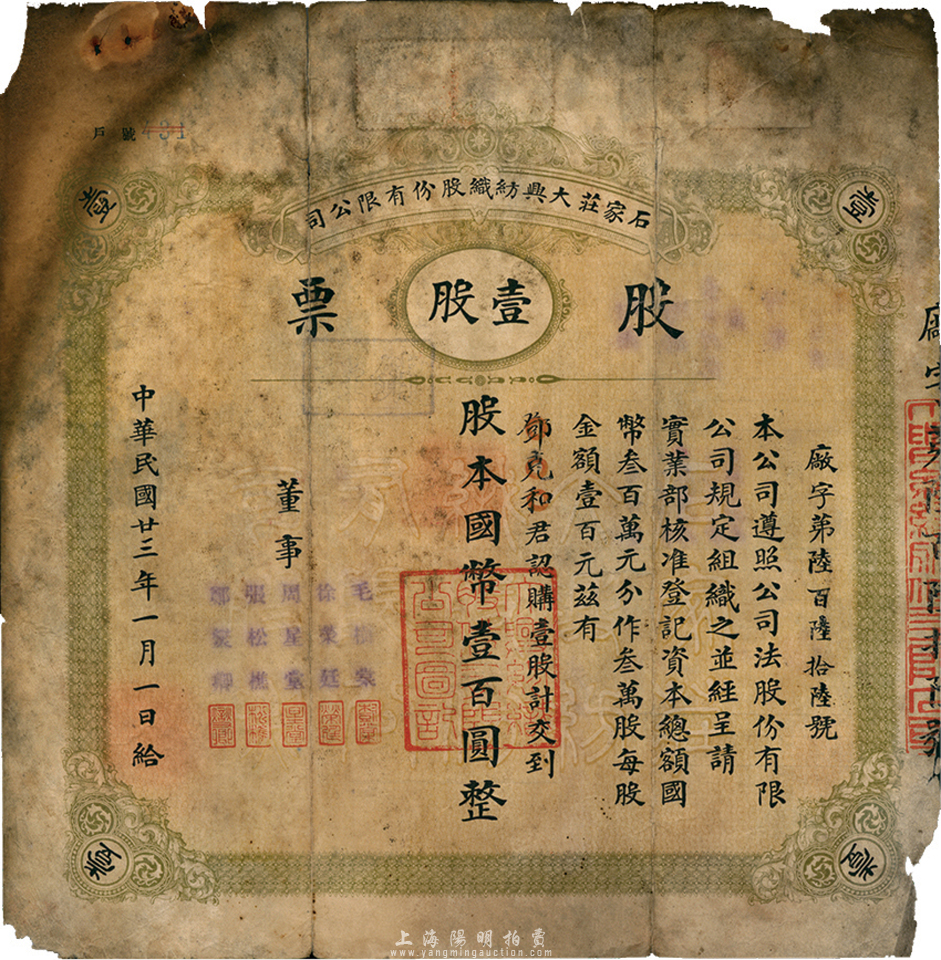 戶 號 431
石家莊大興紡織股份有限公司
股 壹股 票
壹
壹
壹
壹
廠字第陸百陸拾陸號
本公司遵照公司法股份有限
公司規定組織之並經呈請
實業部核准登記資本總額國
幣叁百萬元分作叁萬股每股
金額壹百元茲有
鄧克和君認購壹股計交到
股本國幣壹百圓整
董事
徐榮廷
周星棠
張松樵
中華民國廿三年一月一日給
上海陽明拍賣
www.yangmingauction.com